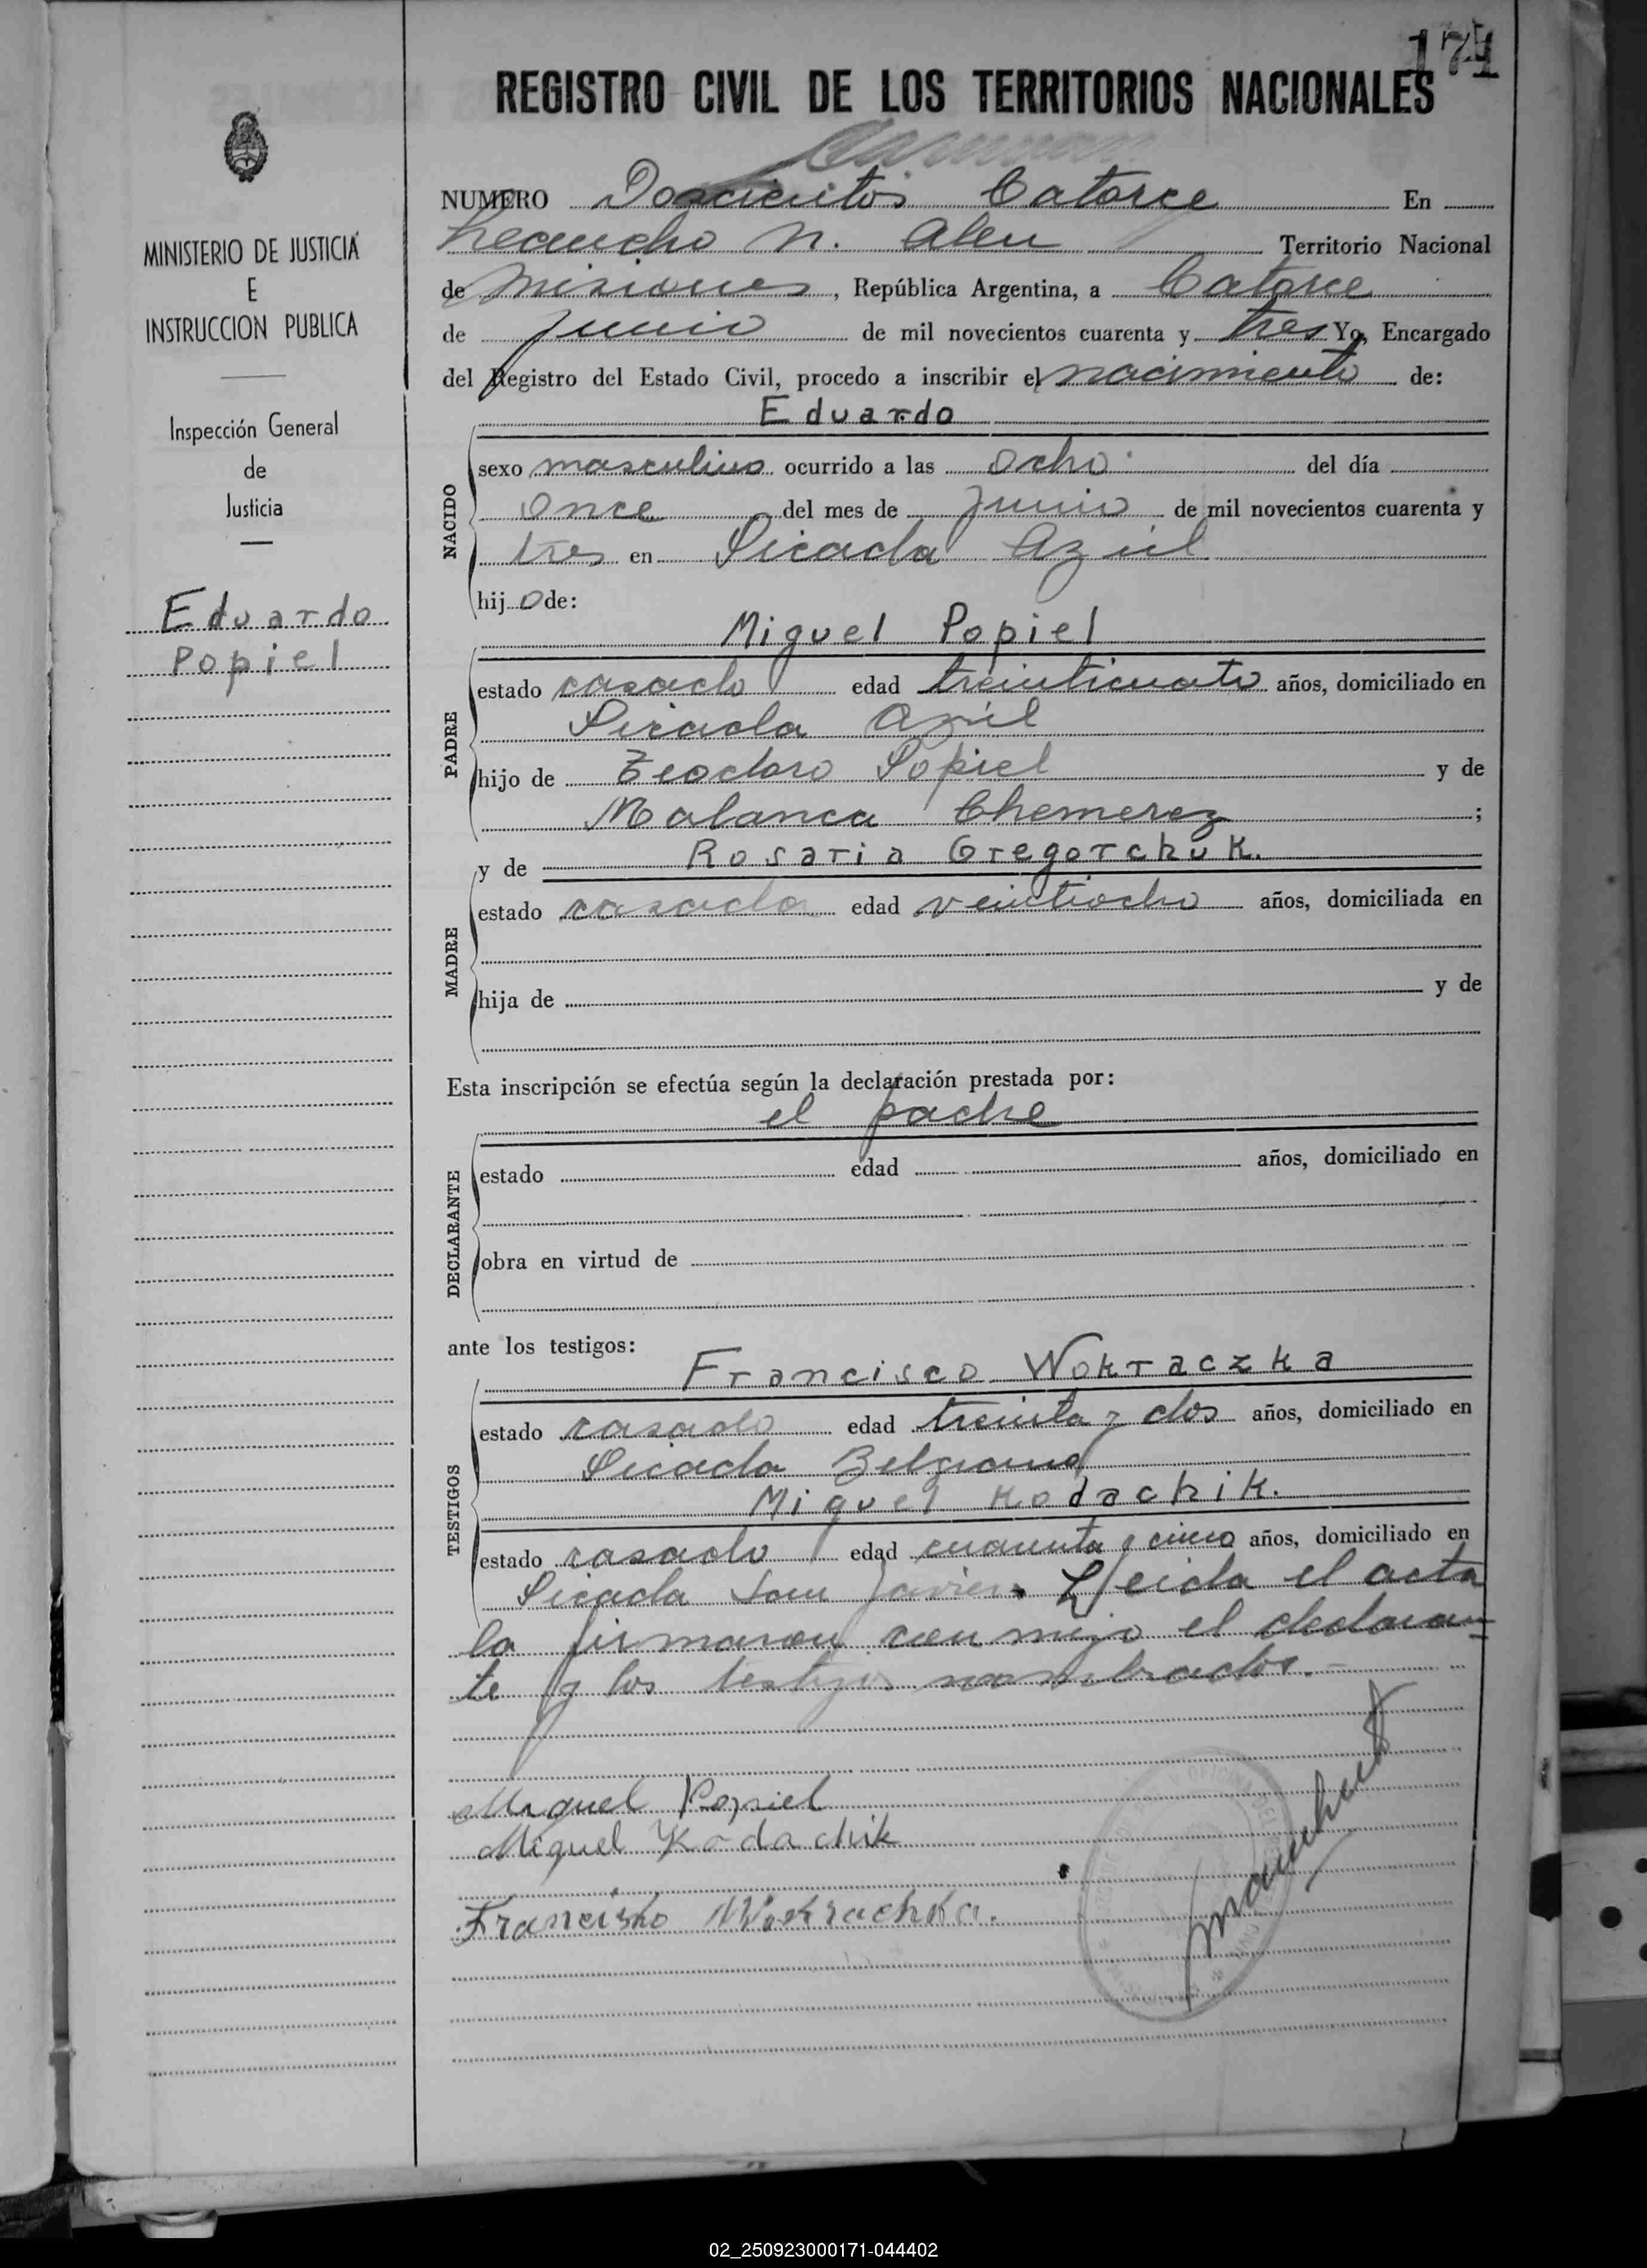 174
REGISTRO CIVIL DE LOS TERRITORIOS NACIONALES
MINISTERIO DE JUSTICIA
E
INSTRUCCION PUBLICA
Inspección General
de
Justicia
Eduardo
Popiel
NUMERO Doscientos Catorce En
Leandro N. Alem Territorio Nacional
de Misiones, República Argentina, a Catorce
de Junio de mil novecientos cuarenta y tres Yo, Encargado
del Registro del Estado Civil, procedo a inscribir el nacimiento de:
Eduardo
NACIDO
sexo masculino ocurrido a las ocho del día
once del mes de Junio de mil novecientos cuarenta y
tres en Picada Azul
hijo de:
Miguel Popiel
PADRE
estado casado edad treinticuatro años, domiciliado en
Picada Azul
hijo de Teodoro Popiel y de
Malanca Chemerez ;
y de Rosaria Gregorchuk.
MADRE
estado casada edad veintiocho años, domiciliada en
hija de y de
Esta inscripción se efectúa según la declaración prestada por:
el padre
DECLARANTE
estado edad años, domiciliado en
obra en virtud de
ante los testigos:
Francisco Wokraczka
TESTIGOS
estado casado edad treinta y dos años, domiciliado en
Picada Belgrano
Miguel Kodachik.
estado casado edad cuarenta y cinco años, domiciliado en
Picada San Javier. Leida el acta
la firmaron conmigo el declaran=
te y los testigos nombrados.-
Miguel Popiel
Miguel Kodachik
Francisko Wokrachka.
02_250923000171-044402